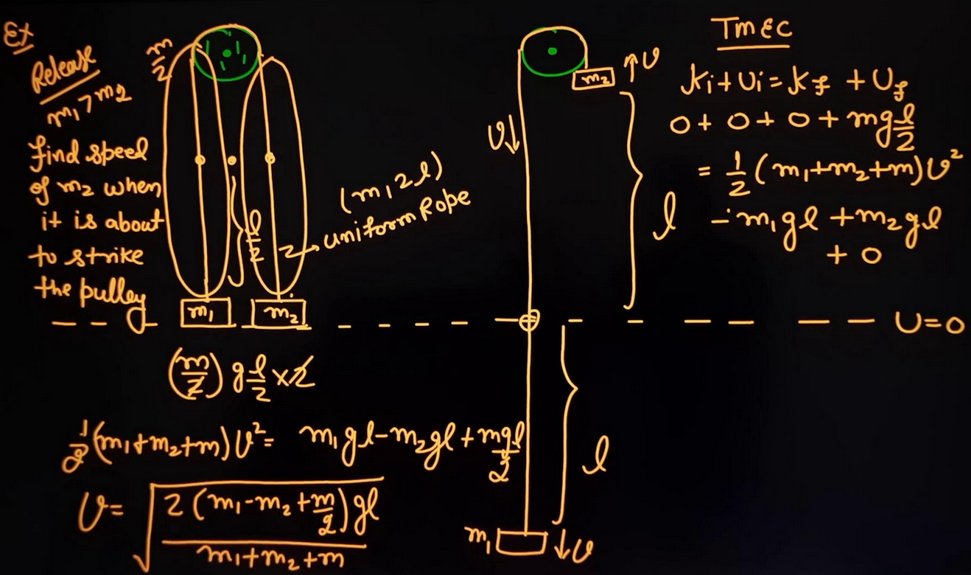 Ex
Release
m₁ > m₂
find speed
of m₂ when
it is about
to strike
the pulley
m/2
l/2
(m, 2l)
uniform Rope
m₁
m₂
(m/2) g l/2 × 2
1/2 (m₁+m₂+m) v² = m₁gl - m₂gl + mgl/2
v = √(2 (m₁-m₂+m/2) gl / (m₁+m₂+m))
m₂
↑v
v↓
l
l
m₁
↓v
U=0
TMEC
Ki+Ui = Kf + Uf
0 + 0 + 0 + mg l/2
= 1/2 (m₁+m₂+m) v²
- m₁gl + m₂gl
+ 0